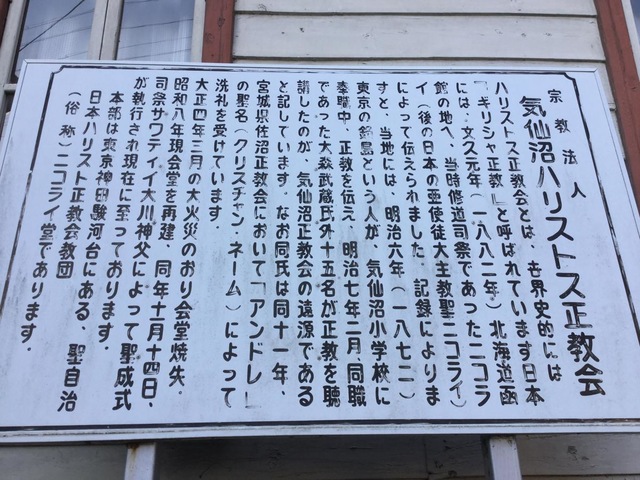 宗教法人
気仙沼ハリストス正教会
ハリストス正教会とは、世界史的には
「ギリシャ正教」と呼ばれています日本
には、文久元年(一八八二年)北海道函
館の地へ、当時修道司祭であったニコラ
イ(後の日本の亜使徒大主教聖ニコライ)
によって伝えられました 記録によりま
すと、当地には、明治六年(一八七二)
東京の鍋島という人が、気仙沼小学校に
奉職中、正教を伝え、明治七年二月同職
であった大森武蔵氏外十五名が正教を聴
講したのが、気仙沼正教会の遠源である
と記しています。なお同氏は同十一年、
宮城県佐沼正教会において「アンドレ」
の聖名(クリスチャン・ネーム)によって
洗礼を受けています.
大正四年三月の大火災のおり会堂焼失.
昭和八年現会堂を再建 同年十月十四日、
司祭サワティイ大川神父によって聖成式
が執行され現在に至っております.
本部は東京神田駿河台にある、聖自治
日本ハリスト正教会教団
(俗称)ニコライ堂であります.